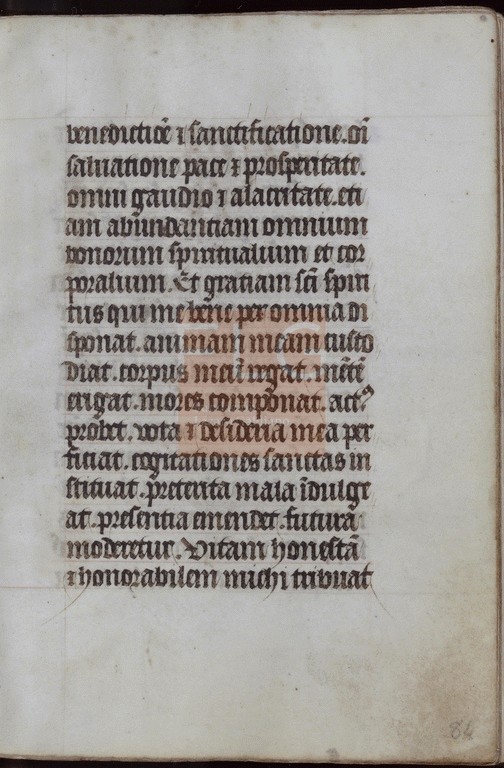 benedictiōe ⁊ sanctificatione. oī
saluatione pace ⁊ prosperitate.
omni gaudio ⁊ alacritate. eti
am abundantiam omnium
bonorum spiritualium et cor
poralium. Et gratiam sc̄i spiri
tus qui me bene per omnia di
sponat. animam meam custo
diat. corpus meū regat. mētē
erigat. mores componat. actꝰ
probet. vota ⁊ desideria mea per
ficiat. cogitationes sanctas in
stituat. preterita mala īdulge
at. presentia emendet. futurā
moderetur. Vitam honestā
⁊ honorabilem michi tribuat
84